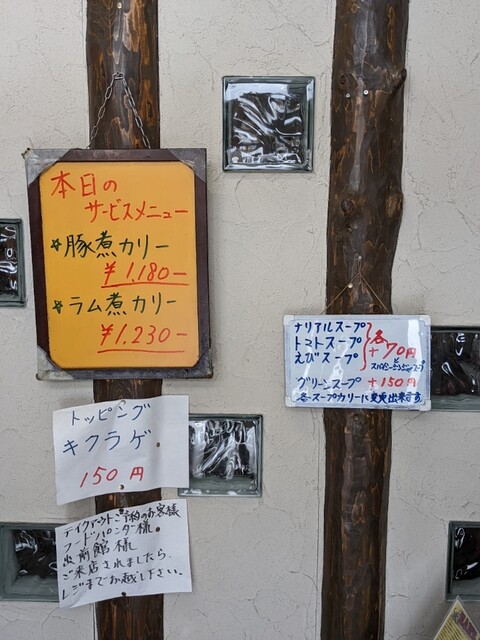 本日の
サービスメニュー
☆豚煮カリー
¥1,180-
☆ラム煮カリー
¥1,230-
トッピング
キクラゲ
150円
テイクアウトご予約のお客様
フードパンダ様。
出前館様
ご来店されましたら、
レジまでお越し下さい。
ナリアルスープ
トマトスープ
えびスープ
各
+70円
グリーンスープ +150円
各スープカリーに変更出来ます